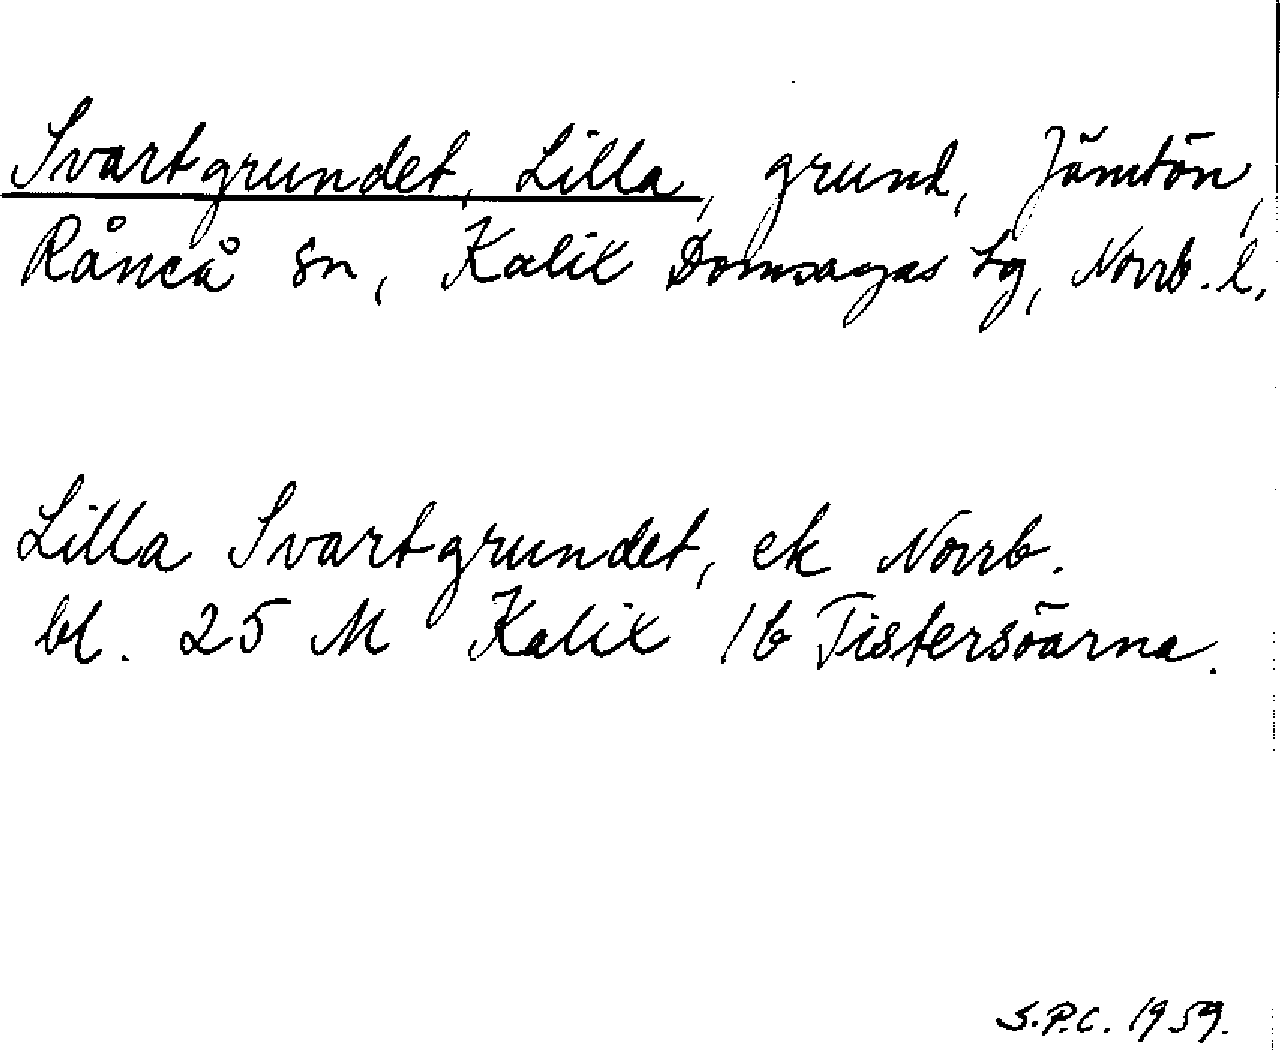 Svartgrundet, Lilla, grund, Jämtön,
Råneå sn, Kalix Domsagas tg, Norrb. l.
Lilla Svartgrundet, ek Norrb.
bl. 25 M Kalix 1b Tistersöarna.
S.P.C. 1959.